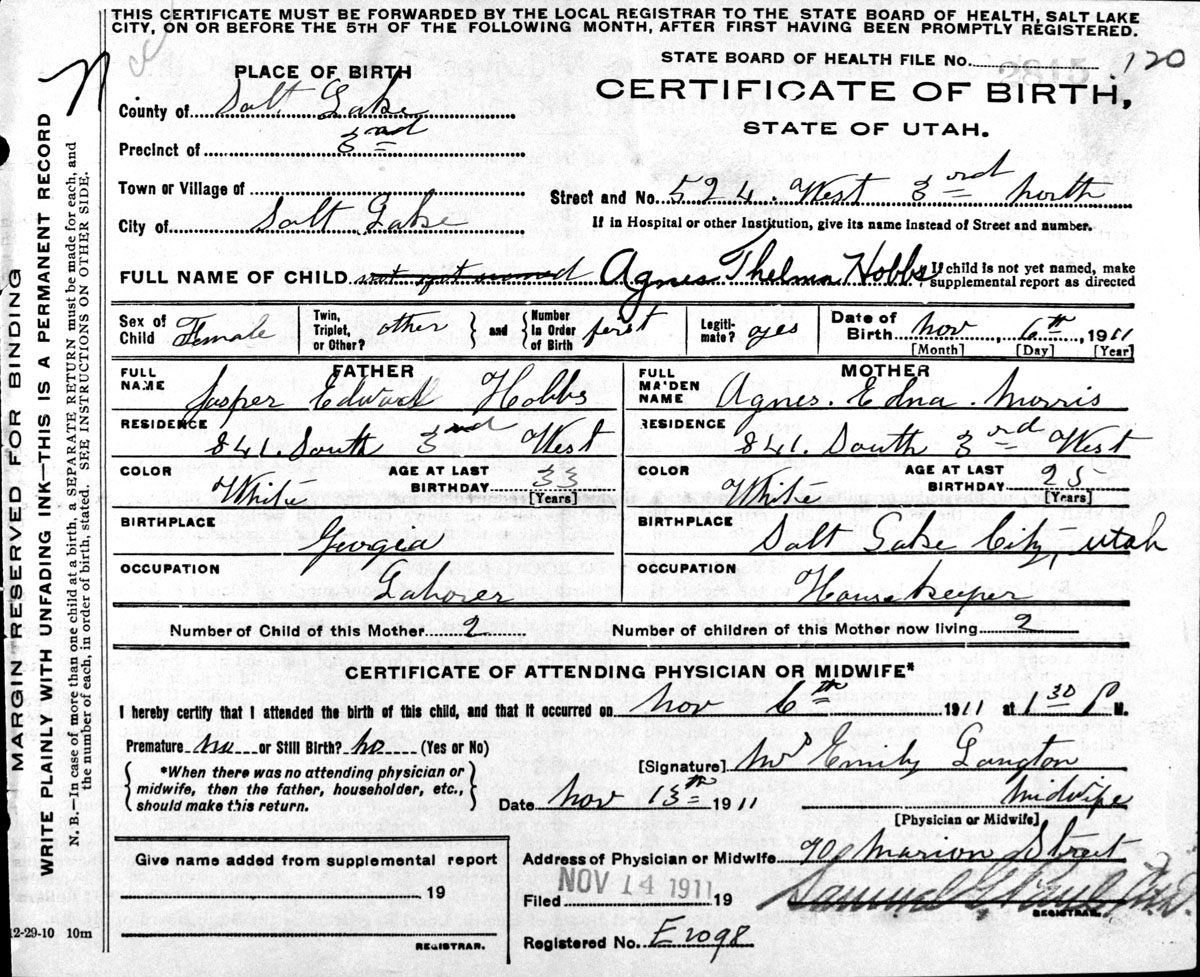 THIS CERTIFICATE MUST BE FORWARDED BY THE LOCAL REGISTRAR TO THE STATE BOARD OF HEALTH, SALT LAKE
CITY, ON OR BEFORE THE 5TH OF THE FOLLOWING MONTH, AFTER FIRST HAVING BEEN PROMPTLY REGISTERED.
MARGIN RESERVED FOR BINDING
WRITE PLAINLY WITH UNFADING INK—THIS IS A PERMANENT RECORD
N. B.—In case of more than one child at a birth, a SEPARATE RETURN must be made for each, and
the number of each, in order of birth, stated. SEE INSTRUCTIONS ON OTHER SIDE.
STATE BOARD OF HEALTH FILE No. 2815 120
CERTIFICATE OF BIRTH,
STATE OF UTAH.
PLACE OF BIRTH
County of Salt Lake
Precinct of 3rd
Town or Village of
City of Salt Lake
Street and No. 524 West 3rd north
If in Hospital or other Institution, give its name instead of Street and number.
FULL NAME OF CHILD not yet named Agnes Thelma Hobbs If child is not yet named, make
supplemental report as directed
Sex of Child Female Twin, Triplet, or Other? other and Number In Order of Birth first Legiti-mate? yes Date of Birth Nov 6th, 1911
[Month] [Day] [Year]
FATHER
FULL NAME Jasper Edward Hobbs
RESIDENCE 841. South 3rd West
COLOR White AGE AT LAST BIRTHDAY 33 [Years]
BIRTHPLACE Georgia
OCCUPATION Laborer
MOTHER
FULL MAIDEN NAME Agnes. Edna. Morris
RESIDENCE 841. South 3rd West
COLOR White AGE AT LAST BIRTHDAY 25 [Years]
BIRTHPLACE Salt Lake City, Utah
OCCUPATION Housekeeper
Number of Child of this Mother 2 Number of children of this Mother now living 2
CERTIFICATE OF ATTENDING PHYSICIAN OR MIDWIFE*
I hereby certify that I attended the birth of this child, and that it occurred on Nov 6th 1911 at 1 30 P M.
Premature no or Still Birth? no (Yes or No)
*When there was no attending physician or
midwife, then the father, householder, etc.,
should make this return.
[Signature] Mrs Emily Langton
Date Nov 13th 1911 Midwife
[Physician or Midwife]
Give name added from supplemental report
19
REGISTRAR.
Address of Physician or Midwife Marion Street
Filed NOV 14 1911 19
REGISTRAR.
Registered No. E2098
12-29-10 10m